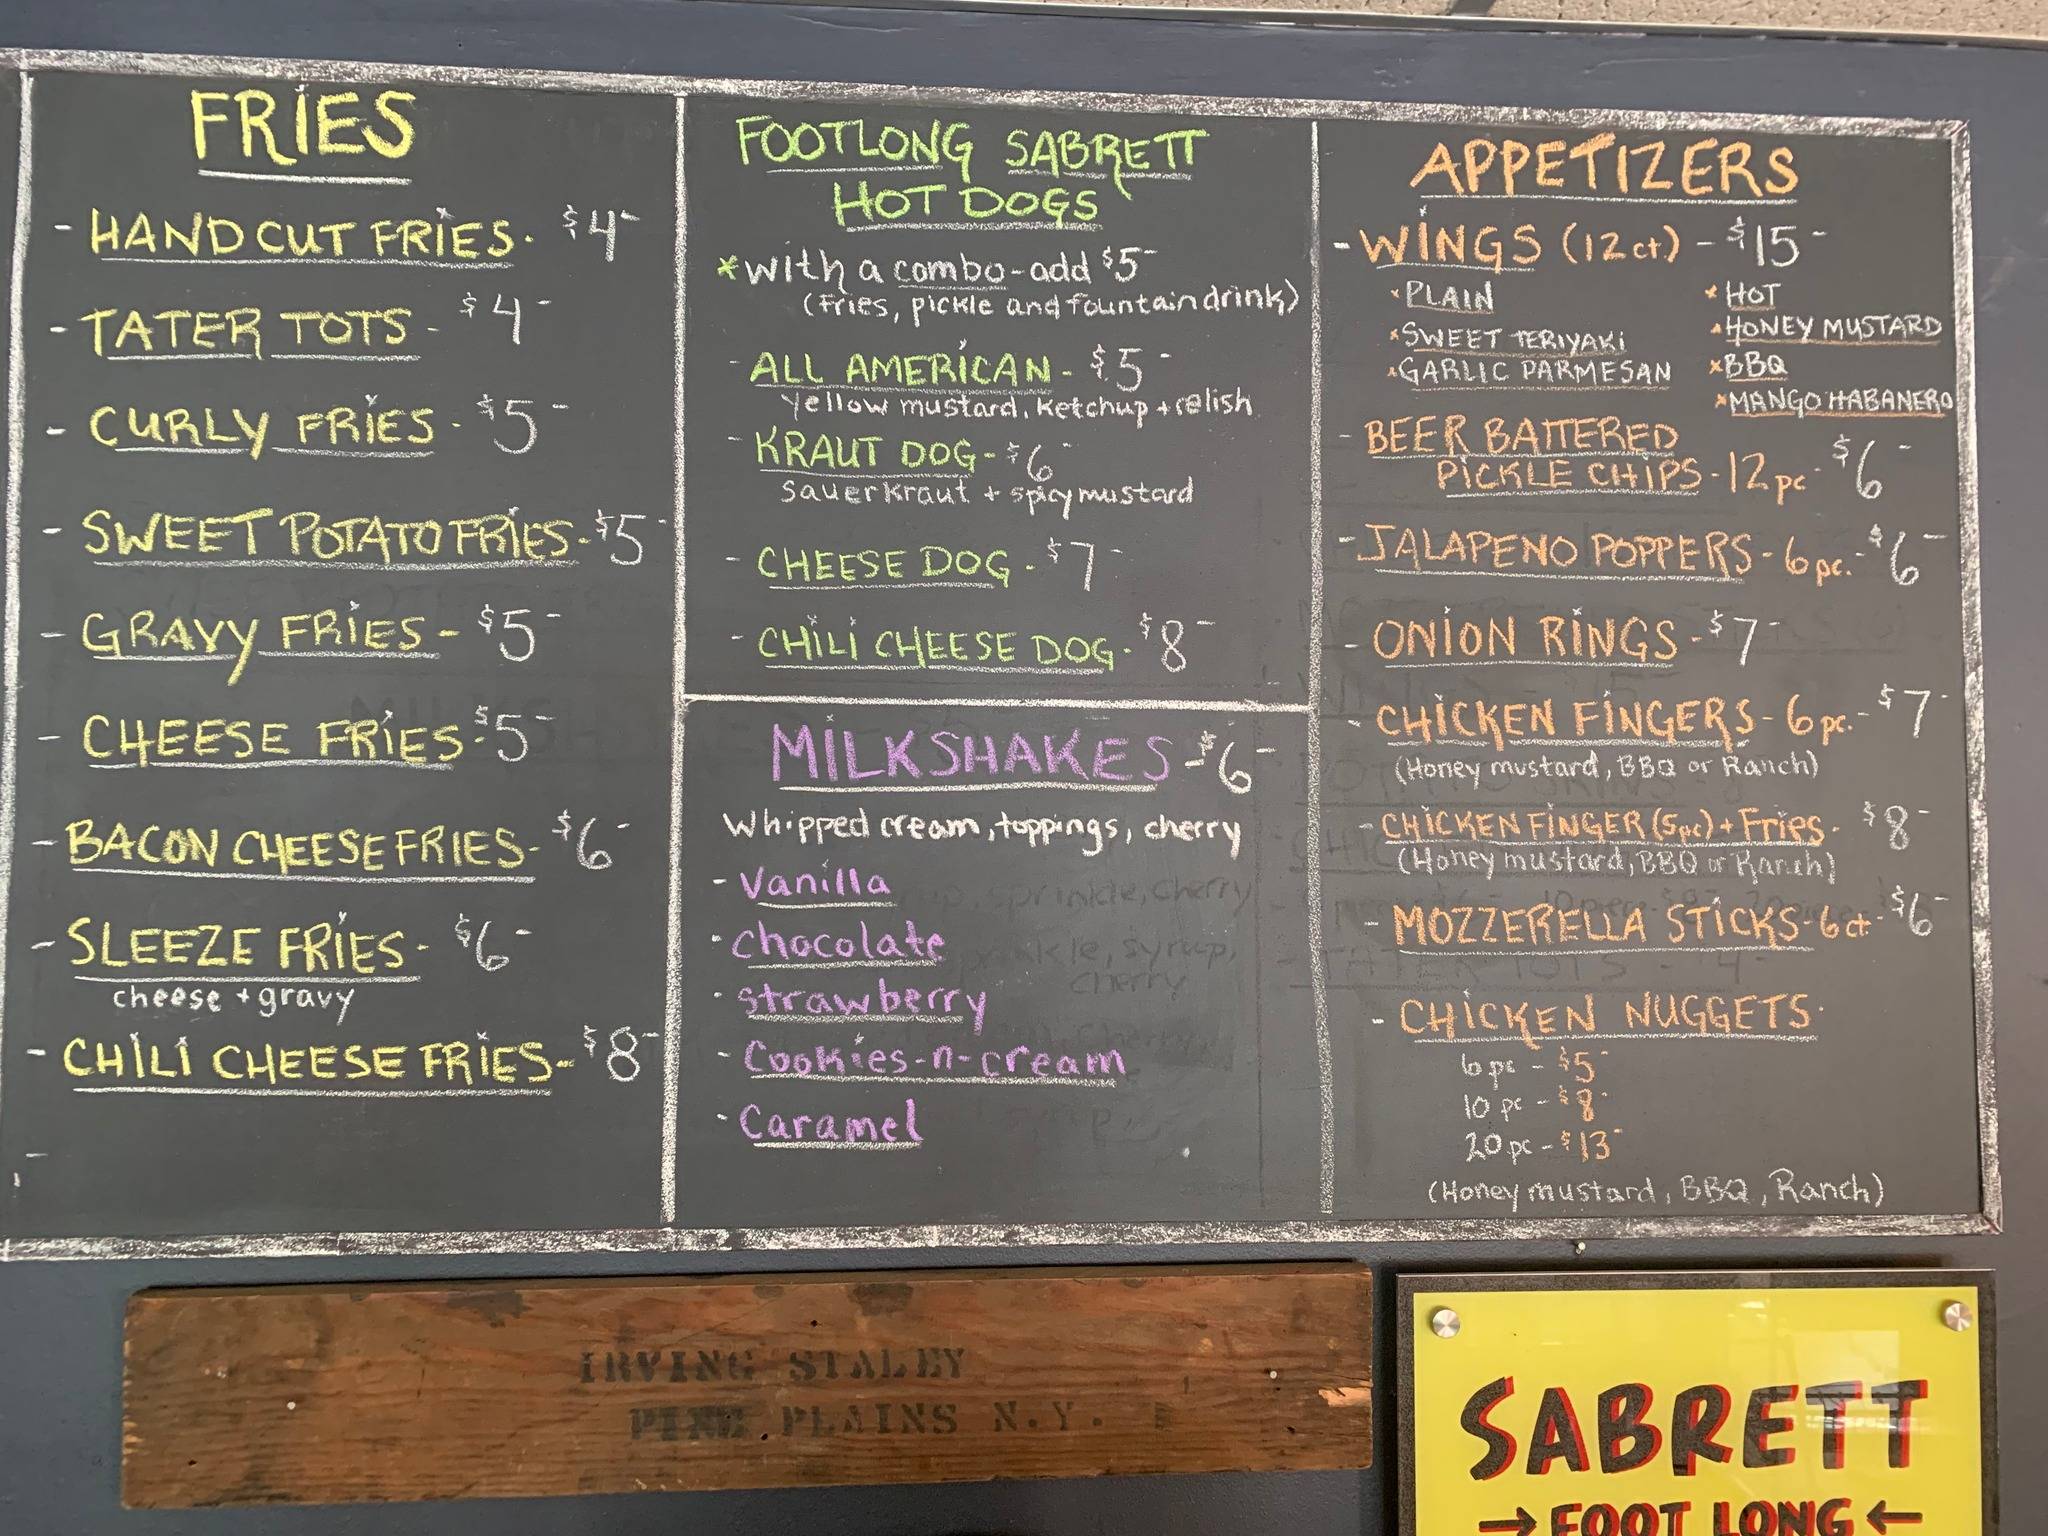 FRIES
- HAND CUT FRIES - $4-
- TATER TOTS - $4-
- CURLY FRIES - $5-
- SWEET POTATO FRIES - $5-
- GRAVY FRIES - $5-
- CHEESE FRIES - $5-
- BACON CHEESE FRIES - $6-
- SLEEZE FRIES - $6-
cheese + gravy
- CHILI CHEESE FRIES - $8-
FOOTLONG SABRETT
HOT DOGS
*with a combo - add $5-
(fries, pickle and fountain drink)
- ALL AMERICAN - $5-
yellow mustard, ketchup + relish
- KRAUT DOG - $6-
sauerkraut + spicy mustard
- CHEESE DOG - $7-
- CHILI CHEESE DOG - $8-
MILKSHAKES - $6-
Whipped cream, toppings, cherry
- Vanilla
- Chocolate
- Strawberry
- Cookies-n-cream
- Caramel
APPETIZERS
- WINGS (12 ct.) - $15-
* PLAIN
* SWEET TERIYAKI
* GARLIC PARMESAN
* HOT
* HONEY MUSTARD
* BBQ
* MANGO HABANERO
- BEER BATTERED
PICKLE CHIPS - 12 pc - $6-
- JALAPENO POPPERS - 6 pc. - $6-
- ONION RINGS - $7-
- CHICKEN FINGERS - 6 pc. - $7-
(Honey mustard, BBQ or Ranch)
- CHICKEN FINGER (5 pc) + Fries - $8-
(Honey mustard, BBQ or Ranch)
- MOZZERELLA STICKS - 6 ct - $6-
- CHICKEN NUGGETS -
6 pc - $5-
10 pc - $8-
20 pc - $13-
(Honey mustard, BBQ, Ranch)
IRVING STALEY
PINE PLAINS N.Y.
SABRETT
→ FOOT LONG ←